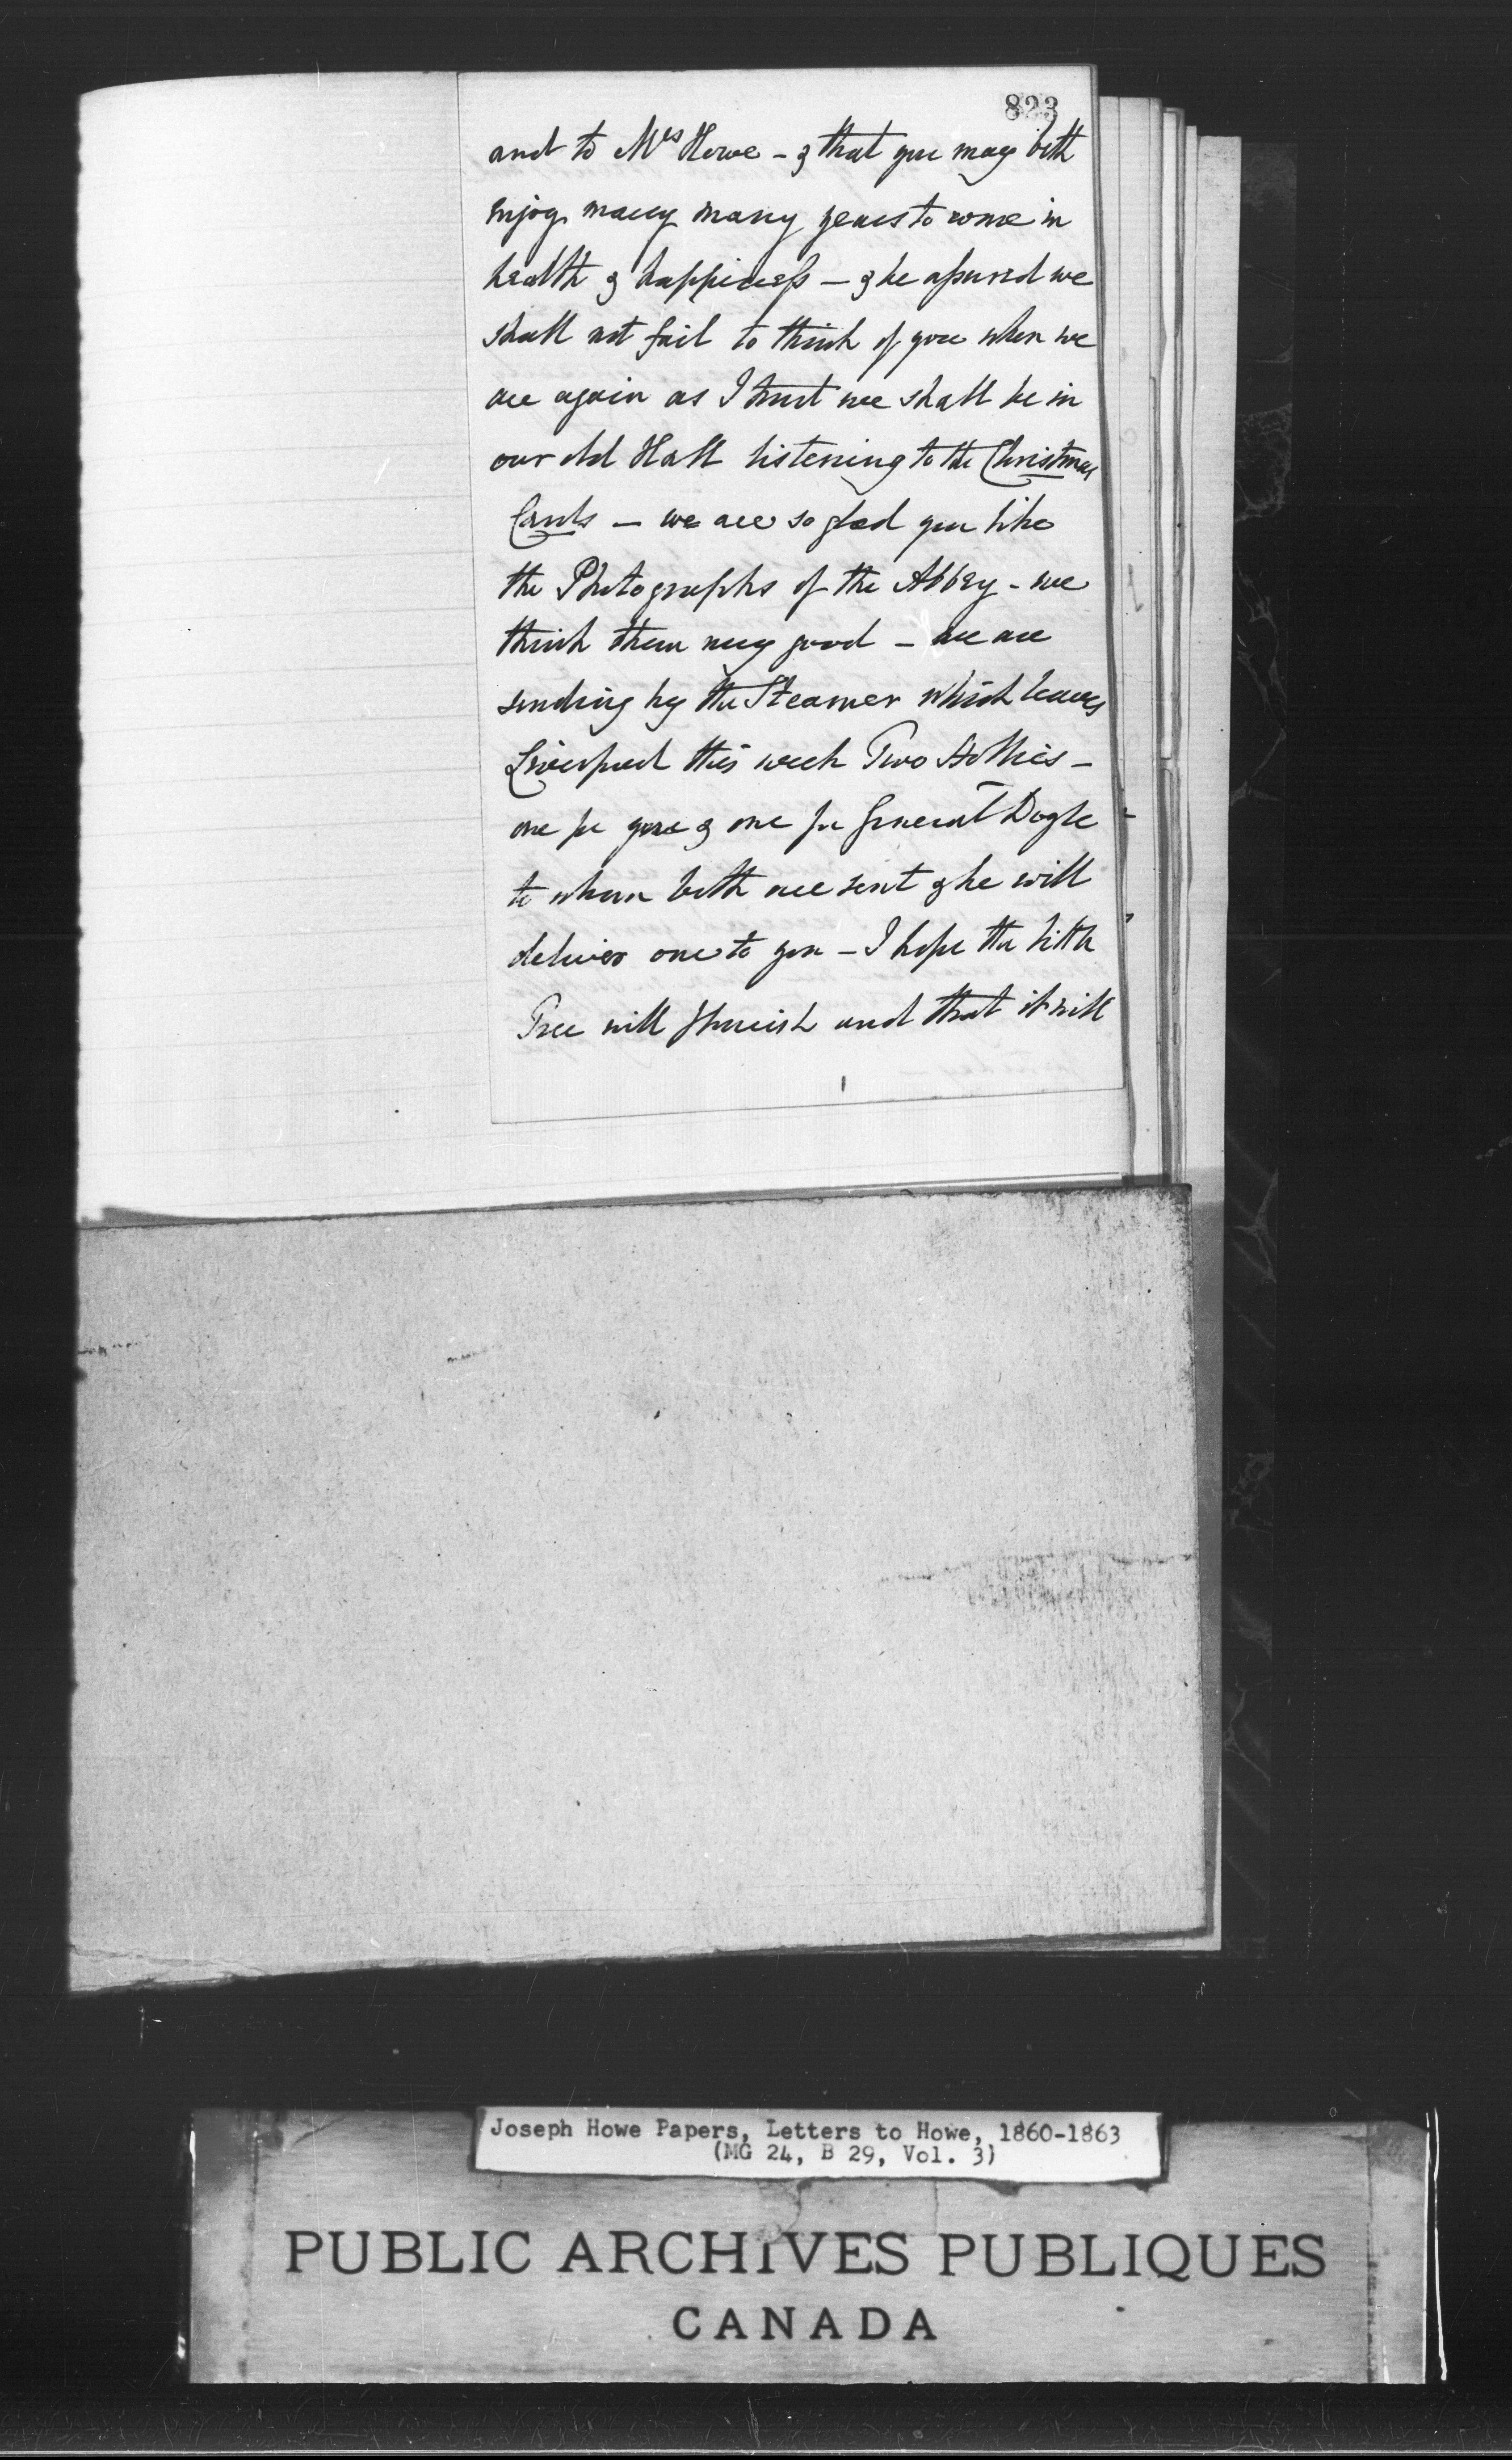 823
and to Mrs Howe - & that you may both
enjoy many many years to come in
health & happiness - & be assured we
shall not fail to think of you when we
are again as I trust we shall be in
our old Hall listening to the Christmas
Carols - we are so glad you like
the Photographs of the Abbey - we
think them very good - we are
sending by the Steamer which leaves
Liverpool this week Two Hollies -
one for you & one for General Doyle
to whom both are sent & he will
deliver one to you - I hope the little
Tree will flourish and that it will
Joseph Howe Papers, Letters to Howe, 1860-1863
(MG 24, B 29, Vol. 3)
PUBLIC ARCHIVES PUBLIQUES
CANADA